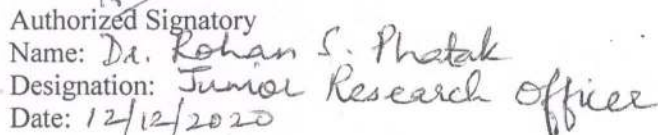 Authorized Signatory
Name: Dr. Rohan S. Phatak
Designation: Junior Research Officer
Date: 12/12/2020